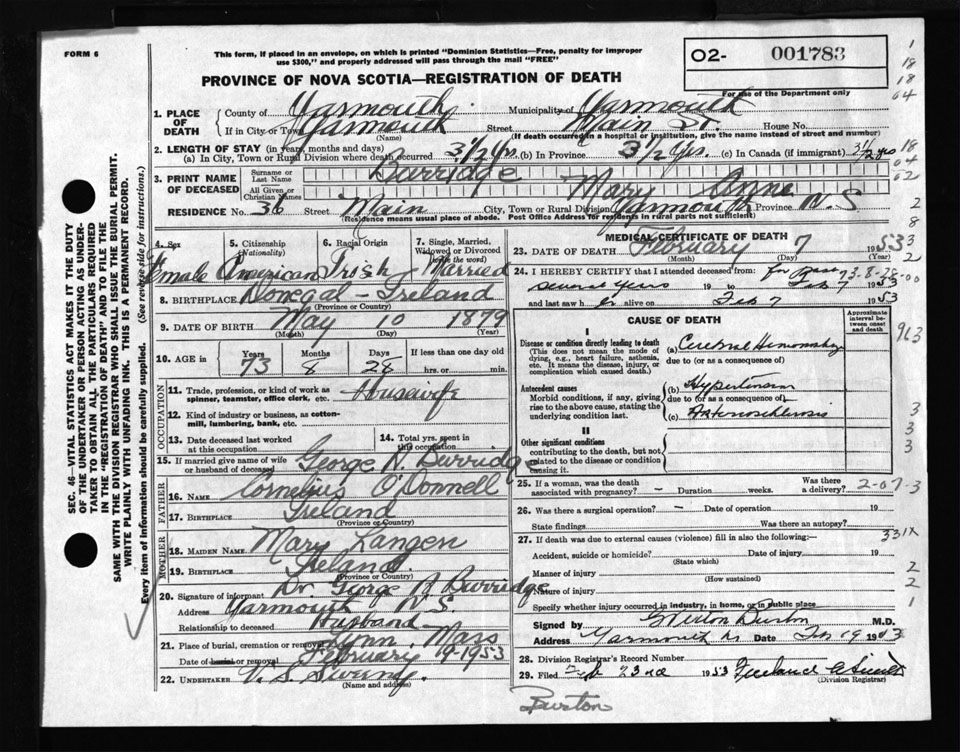 FORM 6
This form, if placed in an envelope, on which is printed "Dominion Statistics—Free, penalty for improper
use $300," and properly addressed will pass through the mail "FREE"
O2- 001783
For use of the Department only
PROVINCE OF NOVA SCOTIA—REGISTRATION OF DEATH
1. PLACE OF DEATH
County of Yarmouth Municipality of Yarmouth
If in City or Town Yarmouth Street Main St. House No.
(Name) (If death occurred in a hospital or institution, give the name instead of street and number)
2. LENGTH OF STAY (in years, months and days)
(a) In City, Town or Rural Division where death occurred 3 1/2 Yrs. (b) In Province 3 1/2 Yrs. (c) In Canada (if immigrant) 3 1/2 yrs
3. PRINT NAME OF DECEASED
Surname or Last Name Burridge
All Given or Christian Names Mary Anne
RESIDENCE No. 36 Street Main City, Town or Rural Division Yarmouth Province N.S
(Residence means usual place of abode. Post Office Address for residents in rural parts not sufficient)
4. Sex Female
5. Citizenship (Nationality) American
6. Racial Origin Irish
7. Single, Married, Widowed or Divorced (write the word) Married
8. BIRTHPLACE Donegal - Ireland
(Province or Country)
9. DATE OF BIRTH May 10 1879
(Month) (Day) (Year)
10. AGE in Years Months Days If less than one day old
73 8 28 hrs. or min.
OCCUPATION
11. Trade, profession, or kind of work as
spinner, teamster, office clerk, etc. Housewife
12. Kind of industry or business, as cotton-
mill, lumbering, bank, etc.
13. Date deceased last worked
at this occupation
14. Total yrs. spent in
this occupation
15. If married give name of wife
or husband of deceased George N. Burridge
FATHER
16. NAME Cornelius O'Donnell
17. BIRTHPLACE Ireland
(Province or Country)
MOTHER
18. MAIDEN NAME Mary Langen
19. BIRTHPLACE Ireland.
(Province or Country)
20. Signature of informant Dr. George N Burridge
Address Yarmouth N.S.
Relationship to deceased Husband
21. Place of burial, cremation or removal Lynn, Mass
Date of burial or removal February 9-1953
22. UNDERTAKER V. S. Sweeny.
(Name and address)
MEDICAL CERTIFICATE OF DEATH
23. DATE OF DEATH February 7 1953
(Month) (Day) (Year)
24. I HEREBY CERTIFY that I attended deceased from: for
several years 19 to Feb 7 1953
73-8-28-00
and last saw her alive on Feb 7 1953
CAUSE OF DEATH
Approximate interval between onset and death
I
Disease or condition directly leading to death
(This does not mean the mode of dying, e.g., heart failure, asthenia, etc. It means the disease, injury, or complication which caused death.)
(a) Cerebral Hemorrhage
due to (or as a consequence of)
Antecedent causes
Morbid conditions, if any, giving rise to the above cause, stating the underlying condition last.
(b) Hypertension
due to (or as a consequence of)
(c) Arteriosclerosis
II
Other significant conditions
contributing to the death, but not related to the disease or condition causing it.
25. If a woman, was the death
associated with pregnancy? – Duration weeks. Was there a delivery?
2-07-3
26. Was there a surgical operation? – Date of operation 19
State findings Was there an autopsy?
27. If death was due to external causes (violence) fill in also the following:—
331X
Accident, suicide or homicide? Date of injury 19
(State which)
Manner of injury
(How sustained)
Nature of injury
Specify whether injury occurred in industry, in home, or in public place
Signed by Burton M.D.
Address Yarmouth NS Date Feb 19 1953
28. Division Registrar's Record Number
29. Filed Feb 23rd 1953 Freeland
(Division Registrar)
Burton
1
18
18
04
18
04
02
2
8
3
2
963
3
3
3
2
2
1
SEC. 46—VITAL STATISTICS ACT MAKES IT THE DUTY
OF THE UNDERTAKER OR PERSON ACTING AS UNDER-
TAKER TO OBTAIN ALL THE PARTICULARS REQUIRED
IN THE "REGISTRATION OF DEATH" AND TO FILE THE
SAME WITH THE DIVISION REGISTRAR WHO SHALL ISSUE THE BURIAL PERMIT.
WRITE PLAINLY WITH UNFADING INK. THIS IS A PERMANENT RECORD.
Every item of information should be carefully supplied. (See reverse side for instructions.)